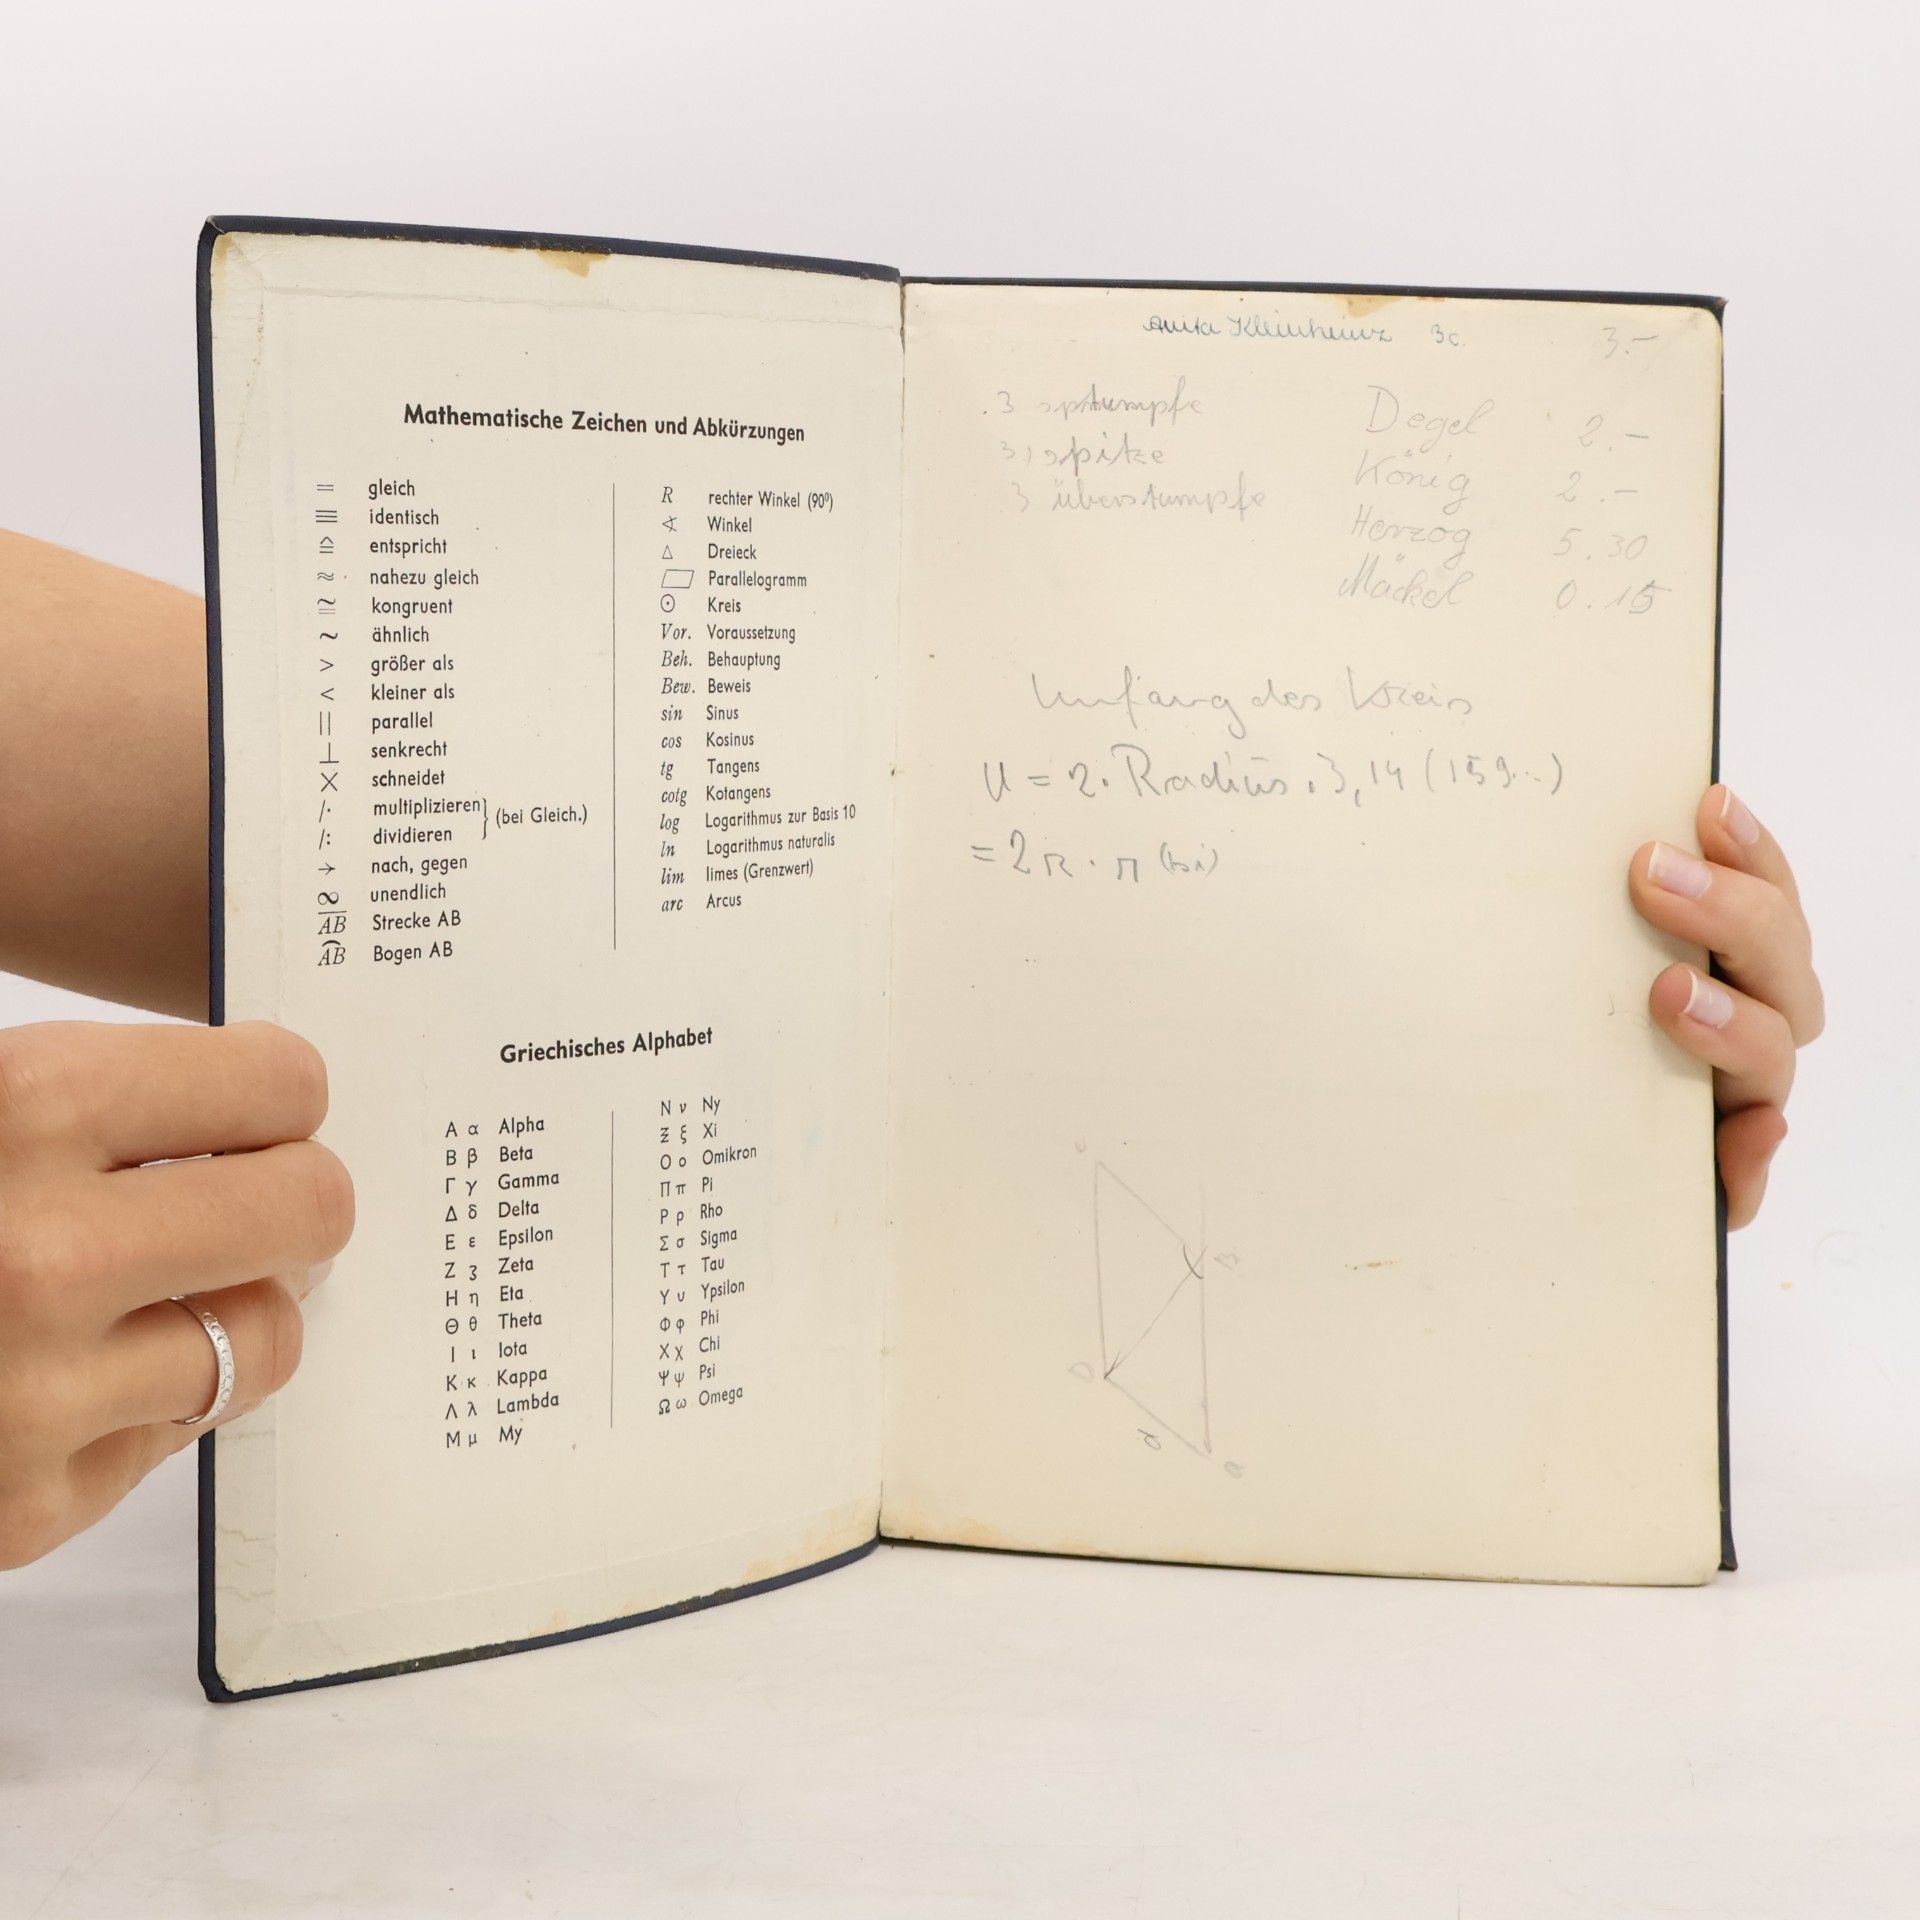 Mathematische Zeichen und Abkürzungen
= gleich
≡ identisch
≙ entspricht
≈ nahezu gleich
≅ kongruent
~ ähnlich
> größer als
< kleiner als
|| parallel
⊥ senkrecht
× schneidet
/· multiplizieren
/: dividieren
} (bei Gleich.)
→ nach, gegen
∞ unendlich
AB Strecke AB
AB Bogen AB
R rechter Winkel (90⁰)
∢ Winkel
△ Dreieck
▱ Parallelogramm
⊙ Kreis
Vor. Voraussetzung
Beh. Behauptung
Bew. Beweis
sin Sinus
cos Kosinus
tg Tangens
cotg Kotangens
log Logarithmus zur Basis 10
ln Logarithmus naturalis
lim limes (Grenzwert)
arc Arcus
Griechisches Alphabet
Α α Alpha
Β β Beta
Γ γ Gamma
Δ δ Delta
Ε ε Epsilon
Ζ ʒ Zeta
Η η Eta
Θ θ Theta
Ι ι Iota
Κ κ Kappa
Λ λ Lambda
Μ μ My
Ν ν Ny
Ξ ξ Xi
Ο ο Omikron
Π π Pi
Ρ ρ Rho
Σ σ Sigma
Τ τ Tau
Υ υ Ypsilon
Φ φ Phi
Χ χ Chi
Ψ ψ Psi
Ω ω Omega
Anita Kleinheinz 3c.
3.-
3 sptumpfe
3) spitze
3 überstumpfe
Degel 2.-
König 2.-
Herzog 5.30
Mäckel 0.15
Umfang des Kreis
U = 2. Radius . 3,14 (159...)
= 2 r . π